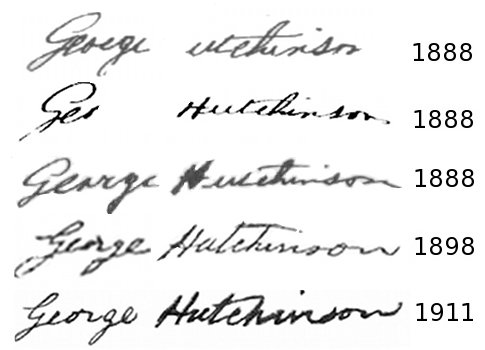 George utchinson 1888
Geo Hutchinson 1888
George Hutchinson 1888
George Hutchinson 1898
George Hutchinson 1911